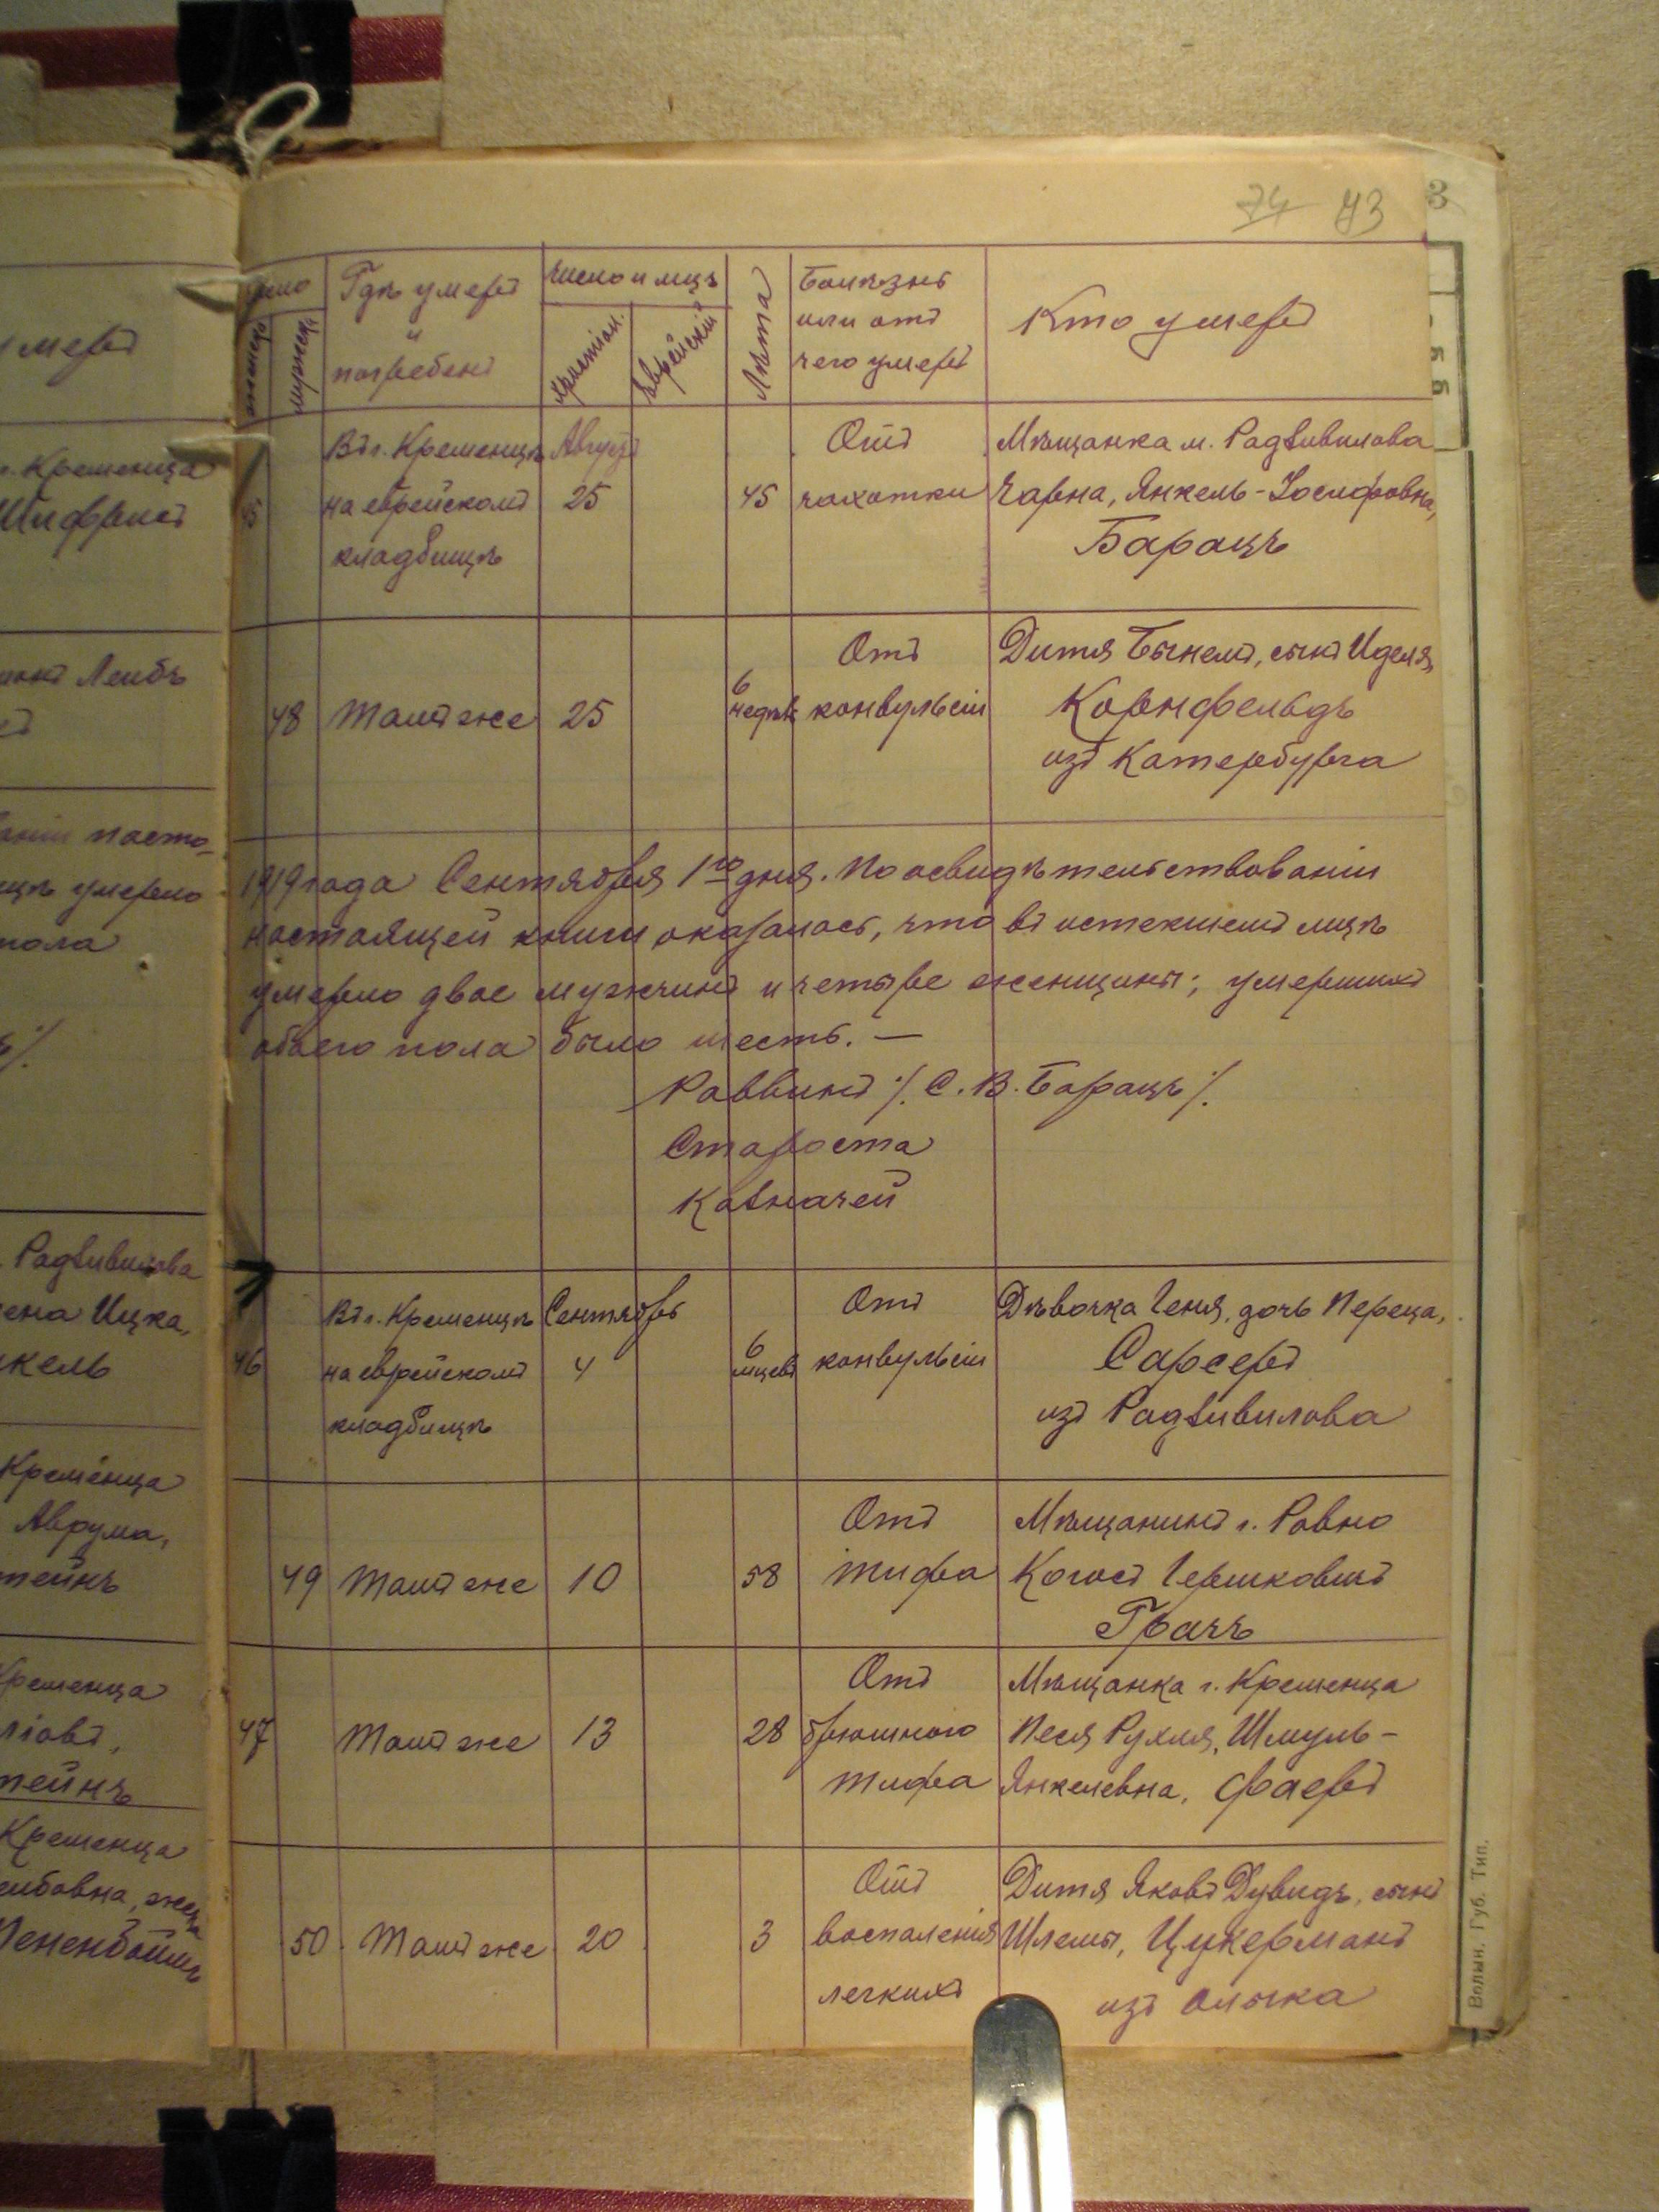 умеръ
г. Кременца
Лейбъ
умерло
пола
Радзивилова
Ицка,
Кременца
Аврума,
Кременца
Кременца
74 73
3
Гдѣ умеръ
и
погребенъ
Число и мцъ
христіан.
Еврейскій
Лѣта
Болѣзнь
или отъ
чего умеръ
Кто умеръ
женск
мужск
Въ г. Кременцѣ Августъ Отъ Мѣщанка м. Радзивилова
45 на еврейскомъ 25 45 чахотки Чарна, Янкель-Іосифовна,
кладбищѣ Барацъ
Отъ Дитя Бынемъ, сынъ Иделя,
48 Тамъ же 25 6 недѣль конвульсіи Корнфельдъ
изъ Катербурга
1919 года Сентября 1го дня. По освидѣтельствованіи
настоящей книги оказалось, что въ истекшемъ мцѣ
умерло двое мужчинъ и четыре женщины; умершихъ
обоего пола было шесть. —
Раввинъ /. С. В. Барацъ /.
Староста
Казначей
Въ г. Кременцѣ Сентябрь Отъ Дѣвочка Геня, дочь Переца,
46 на еврейскомъ 4 6 мцевъ конвульсіи Сарсеръ
кладбищѣ изъ Радзивилова
Отъ Мѣщанинъ г. Ровно
49 Тамъ же 10 58 тифа Когосъ Гершковичъ
Грачъ
Отъ Мѣщанка г. Кременца
47 Тамъ же 13 28 брюшного Песя Рухля, Шмуль-
тифа Янкелевна, Фаеръ
Отъ Дитя Яковъ Дувидъ, сынъ
50 Тамъ же 20 3 воспаленія Шлемы, Цукерманъ
легкихъ изъ Олыка
Волын. Губ. Тип.